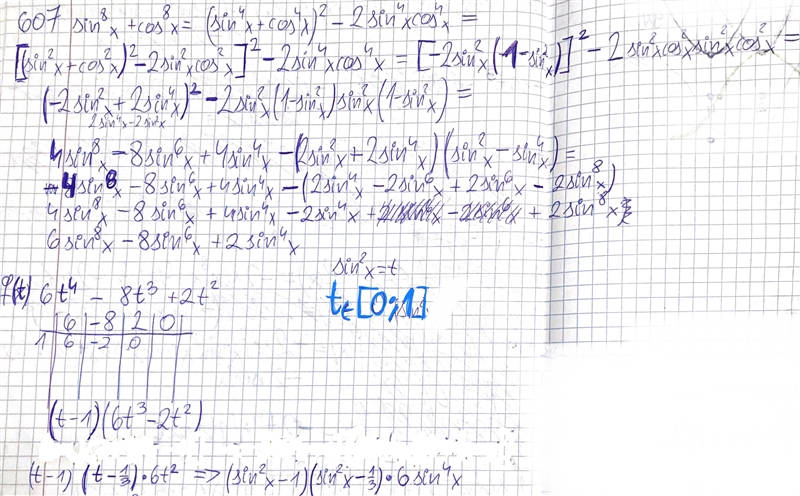 607 sin²⁸x + cos⁸x = (sin⁴x + cos⁴x)² - 2sin⁴x cos⁴x =
[(sin²x + cos²x)² - 2sin²x cos²x]² - 2sin⁴x cos⁴x = [-2sin²x(1 - sin²x)]² - 2sin²x cos²x sin²x cos²x =
(-2sin²x + 2sin⁴x)² - 2sin²x(1 - sin²x)sin²x(1 - sin²x) =
2sin⁴x - 2sin²x
4sin⁸x - 8sin⁶x + 4sin⁴x - (2sin²x + 2sin⁴x)(sin²x - sin⁴x) =
4sin⁸x - 8sin⁶x + 4sin⁴x - (2sin⁴x - 2sin⁶x + 2sin⁶x - 2sin⁸x)
4sin⁸x - 8sin⁶x + 4sin⁴x - 2sin⁴x + 2sin⁸x
6sin⁸x - 8sin⁶x + 2sin⁴x
sin²x = t
t ∈ [0;1]
f(t) 6t⁴ - 8t³ + 2t²
6 -8 2 0
1 6 -2 0
(t-1)(6t³ - 2t²)
(t-1)(t-1/3)·6t² => (sin²x - 1)(sin²x - 1/3)·6sin⁴x